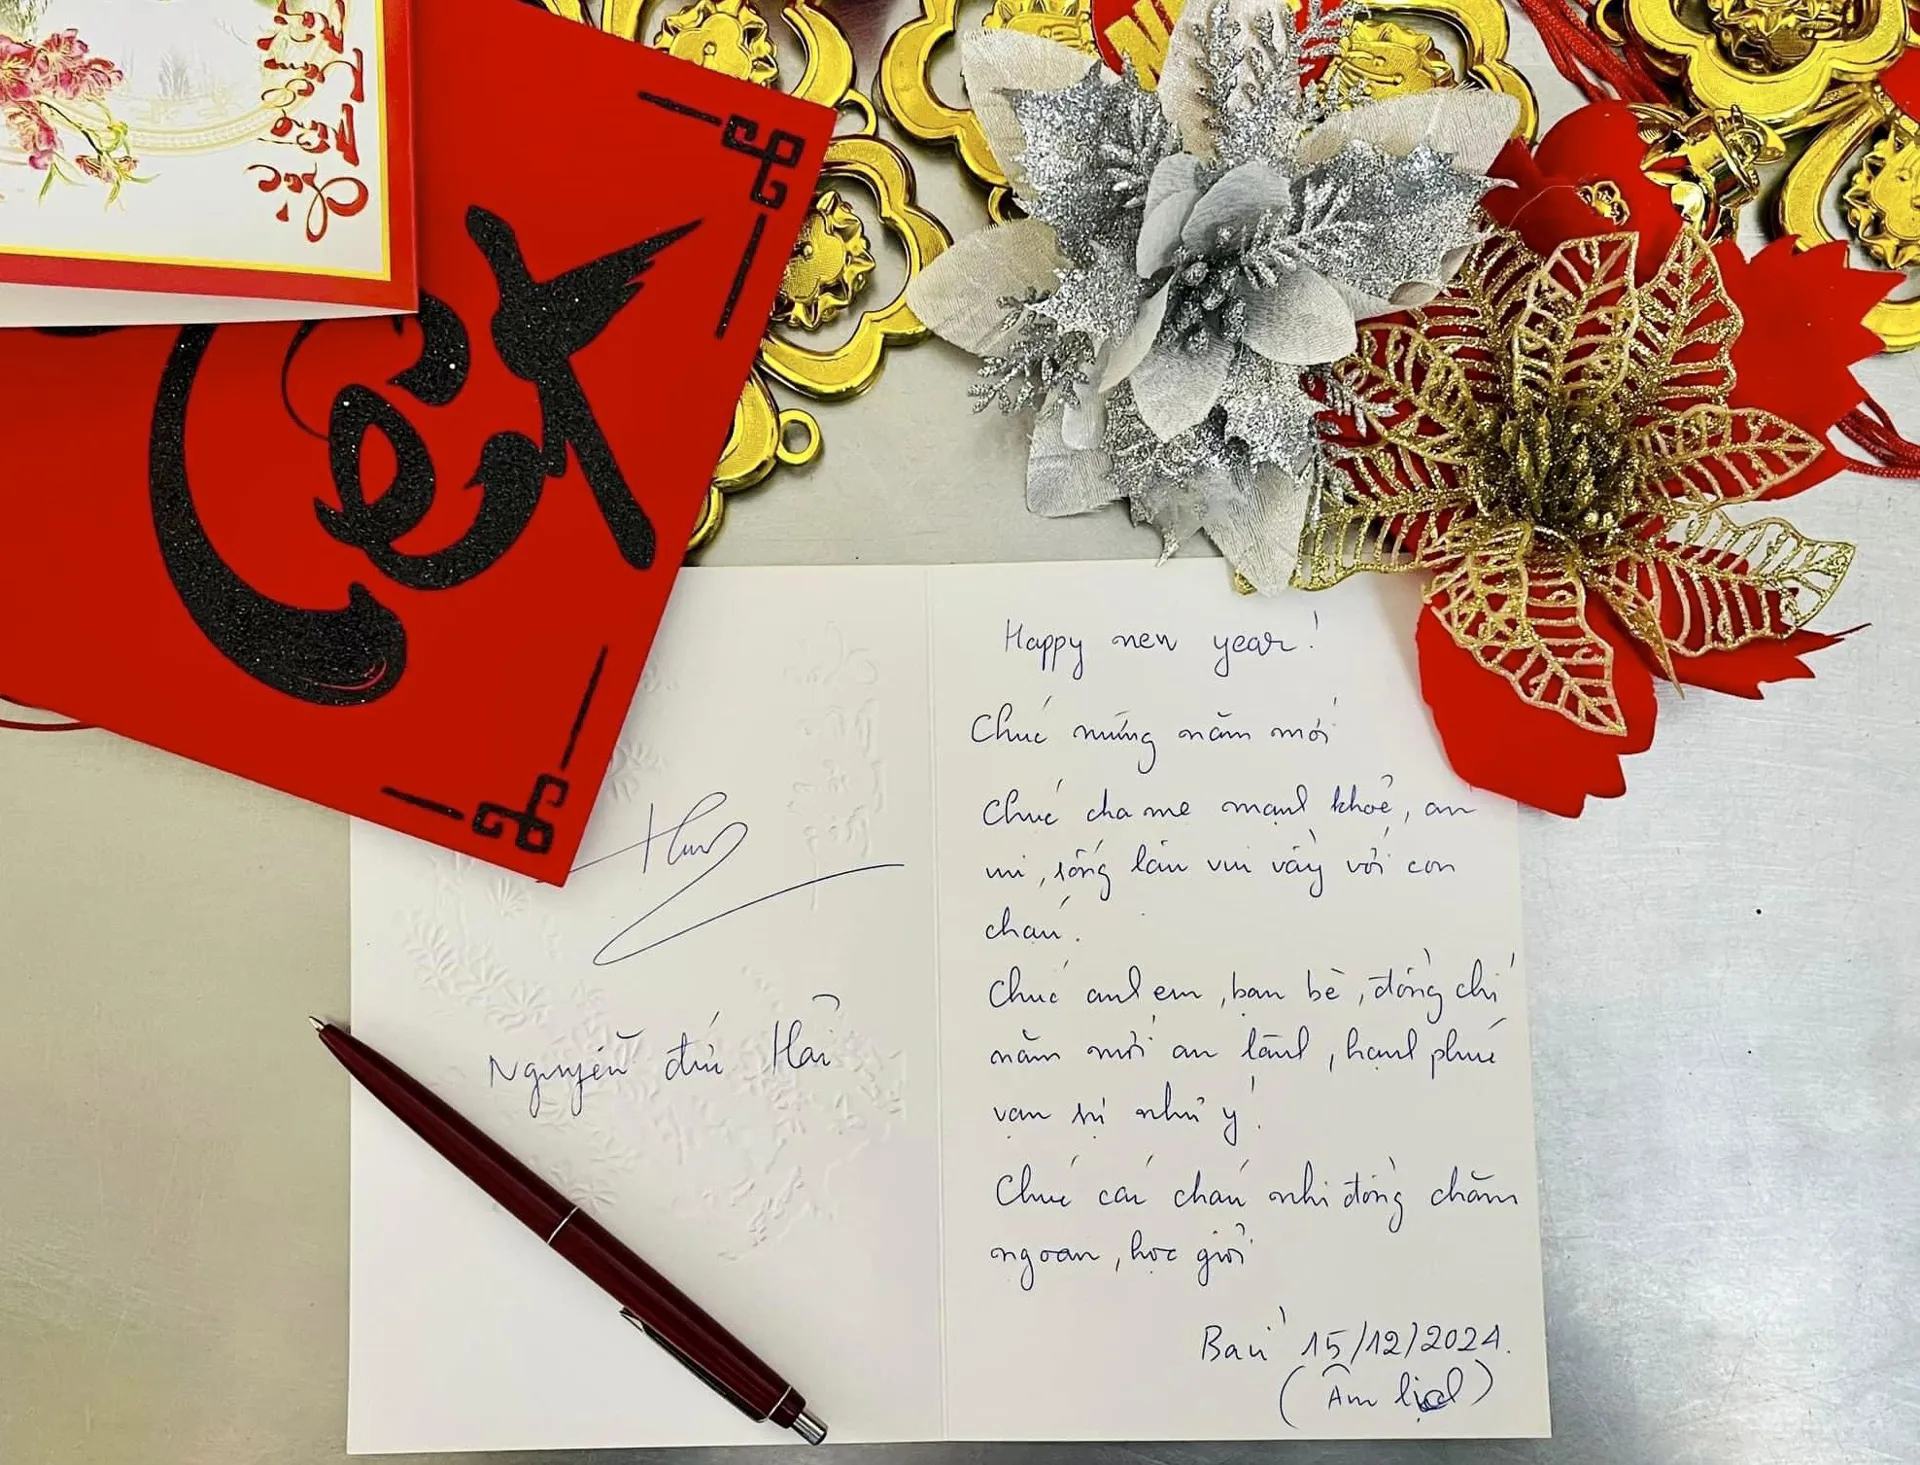 Tết
Happy new year!
Chúc mừng năm mới
Chúc cha mẹ mạnh khoẻ, an
vui, sống lâu vui vầy với con
cháu.
Chúc anh em, bạn bè, đồng chí
năm mới an lành, hạnh phúc
vạn sự như ý!
Chúc các cháu nhi đồng chăm
ngoan, học giỏi
Bari 15/12/2024.
(Âm lịch)
Nguyễn đức Hải